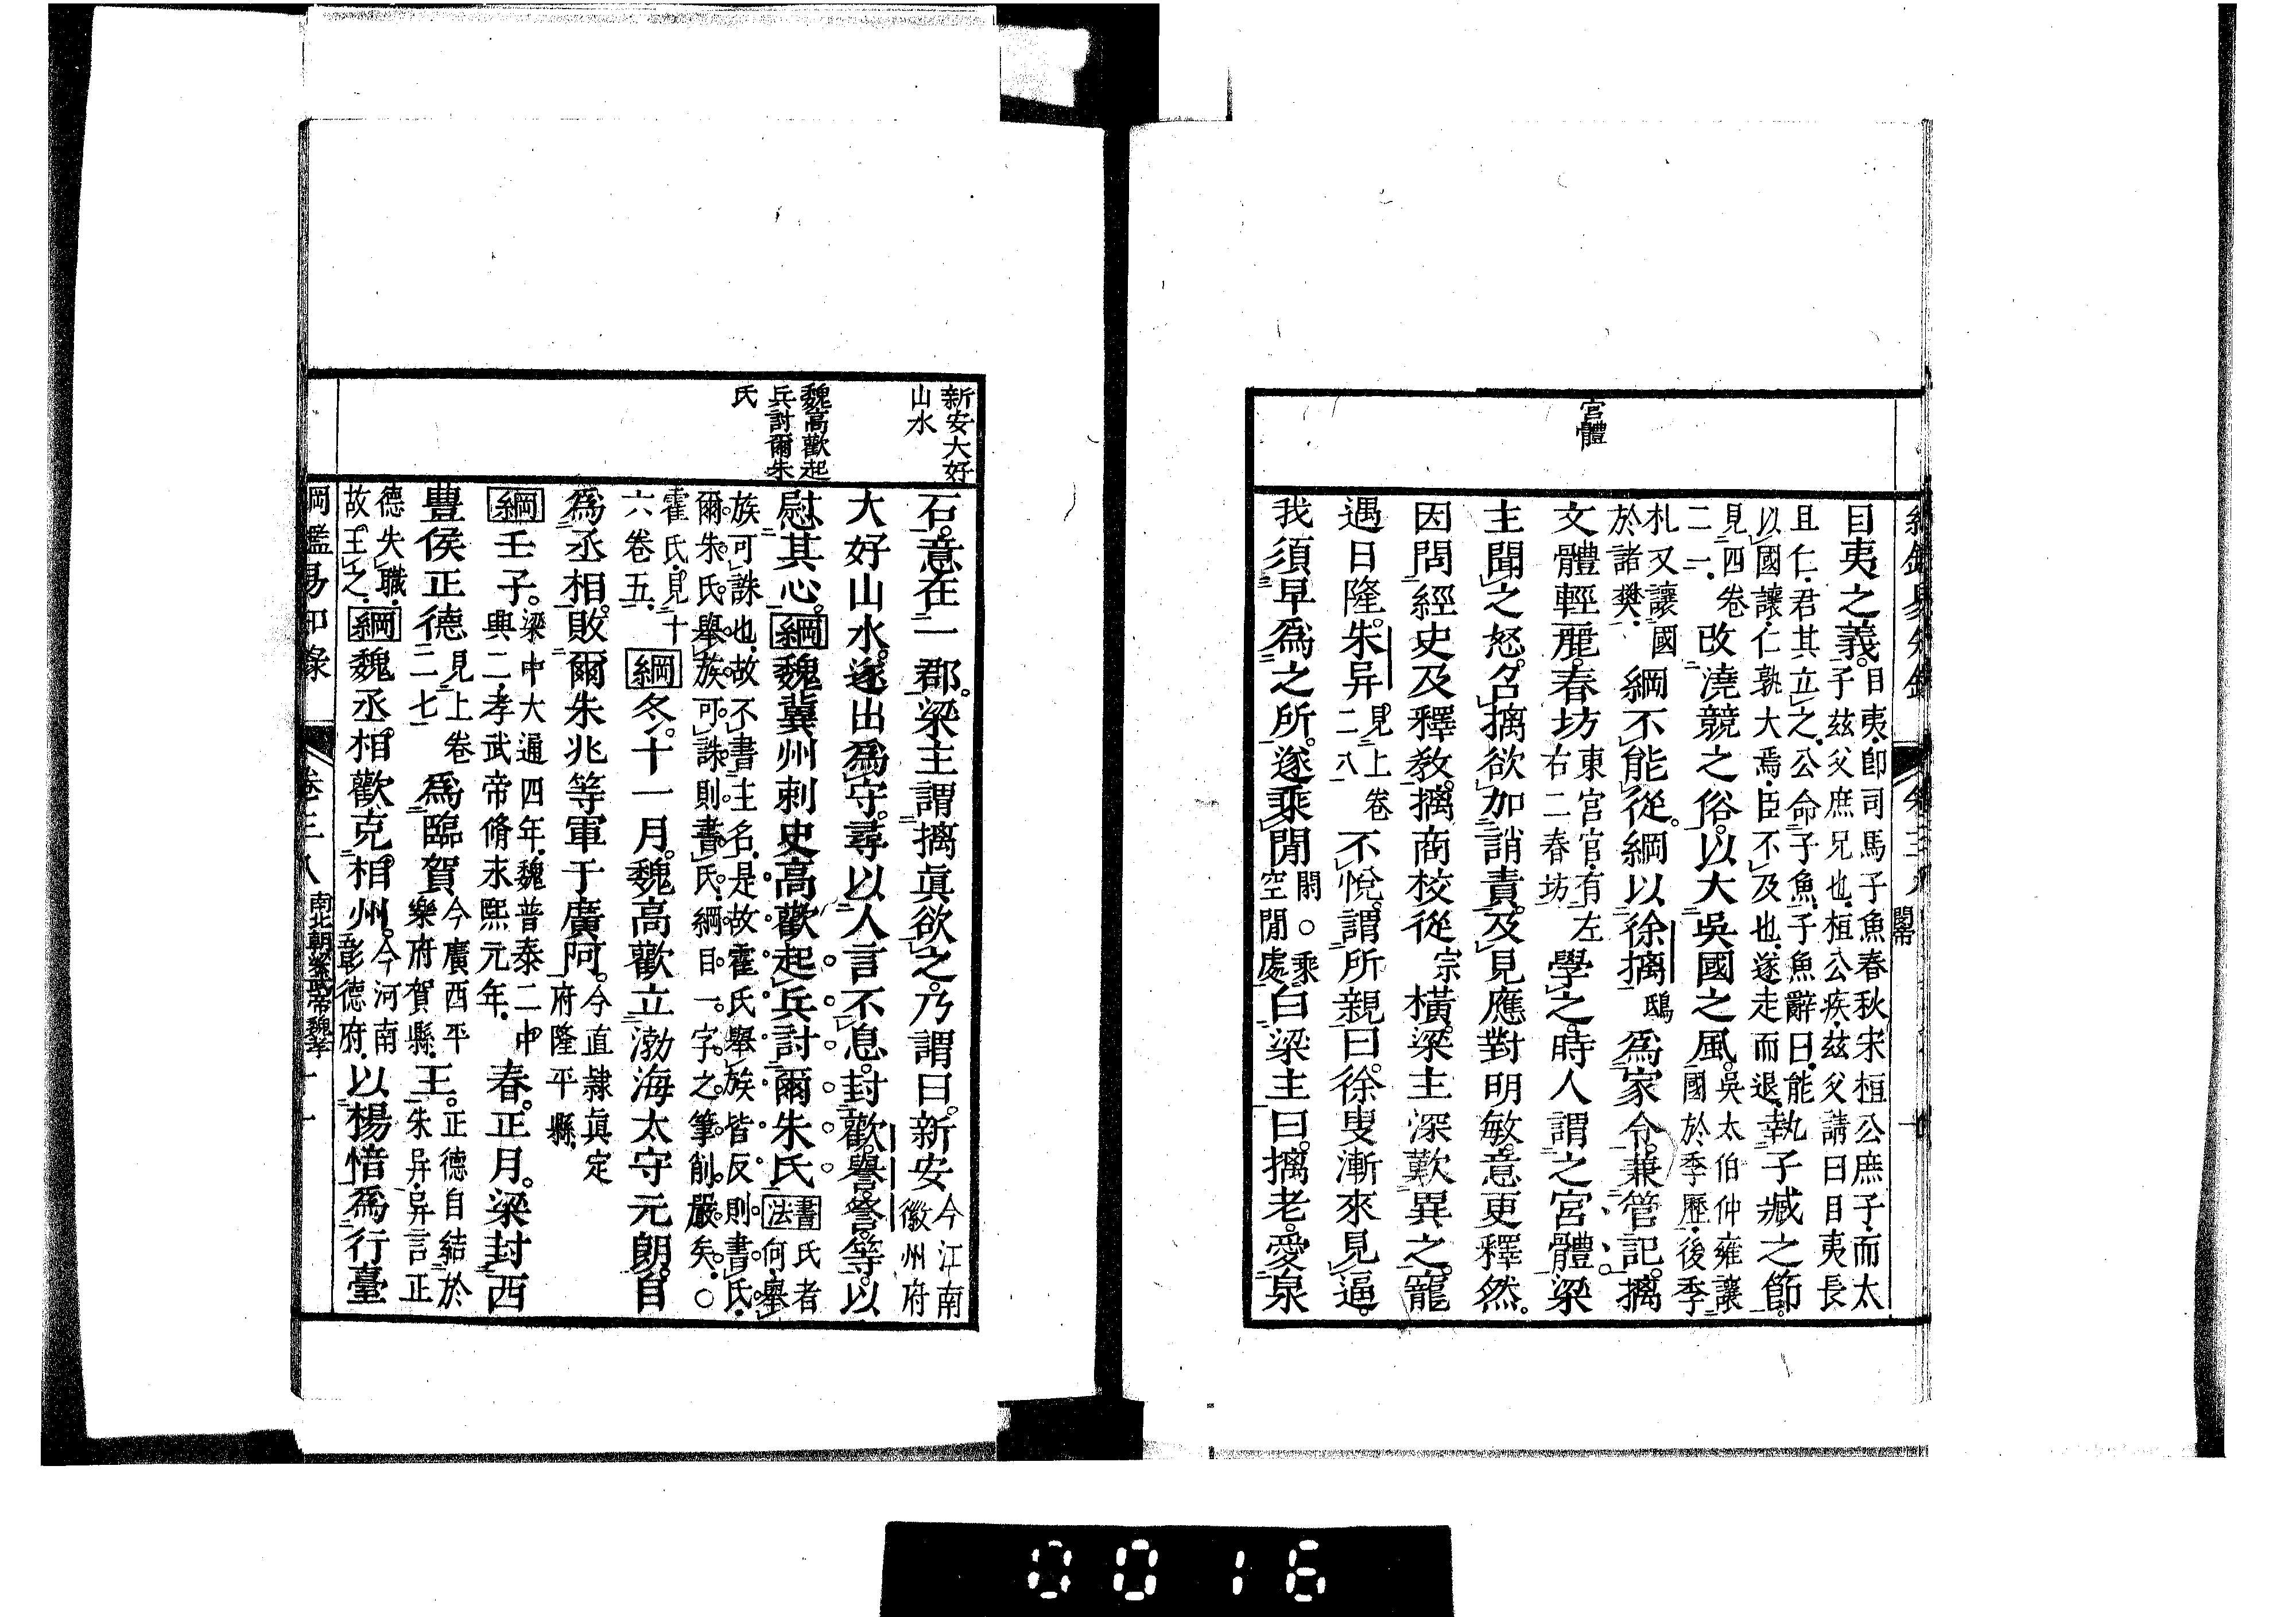 宮體
目夷之義。目夷、卽司馬子魚春秋宋桓公庶子、而太
子茲父庶兄也、桓公疾、茲父請曰目夷長
且仁、君其立之、公命子魚、子魚辭曰、能
以國讓、仁孰大焉、臣不及也、遂走而退、執子臧之節。
見四卷
二一、改澆競之俗。以大吳國之風。吳太伯仲雍讓
國於季歷、後季
札又讓國
於諸樊、綱不能從。綱以徐摛鴟爲家令。兼管記。摛
文體輕麗。春坊東宮官、有左
右二春坊學之。時人謂之宮體。梁
主聞之怒。召摛欲加誚責。及見應對明敏。意更釋然。
因問經史及釋敎。摛商校從宗橫。梁主深歎異之。寵
遇日隆。朱异見上卷
二八不悅。謂所親曰。徐叟漸來見逼。
我須早爲之所。遂乘閒閑○乘
空閒處白梁主曰。摛老。愛泉
新安大好
山水
魏高歡起
兵討爾朱
氏
石。意在一郡。梁主謂摛眞欲之。乃謂曰。新安今江南
徽州府
大好山水。遂出爲守。尋以人言不息。封歡譽詧等。以
慰其心。綱魏冀州刺史高歡起兵討爾朱氏書法氏者
何、擧
族可誅也、故不書主名、是故霍氏擧族皆反則書氏、
爾朱氏擧族可誅則書氏、綱目一字之筆削嚴矣、○
霍氏、見十
六卷五、綱冬。十一月。魏高歡立渤海太守元朗。自
爲丞相。敗爾朱兆等軍于廣阿。今直隷眞定
府隆平縣、
綱壬子。梁中大通四年、魏普泰二中
興二、孝武帝脩永熙元年、春。正月。梁封西
豐侯正德見上卷
二七爲臨賀今廣西平
樂府賀縣、王。正德自結於
朱异、异言正
德失職、
故王之、綱魏丞相歡克相州。今河南
彰德府、以楊愔爲行臺
綱鑑易知錄 卷三八 南北朝梁武帝魏孝